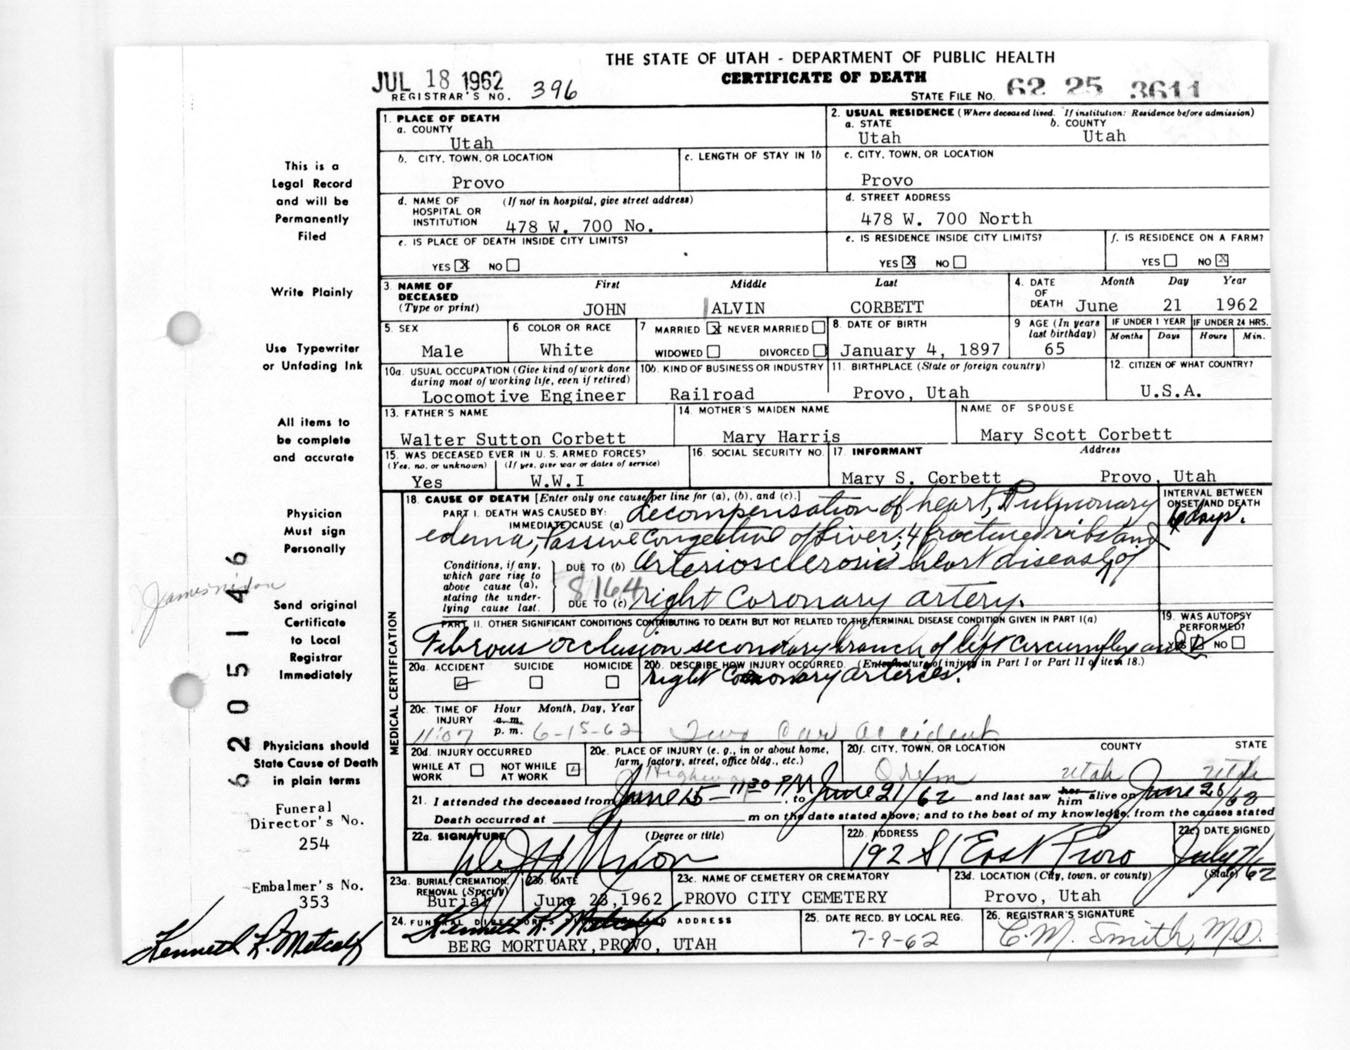 THE STATE OF UTAH - DEPARTMENT OF PUBLIC HEALTH
CERTIFICATE OF DEATH
JUL 18 1962
REGISTRAR'S NO. 396
STATE FILE NO. 62 25 3611
1. PLACE OF DEATH
a. COUNTY
Utah
2. USUAL RESIDENCE (Where deceased lived. If institution: Residence before admission)
a. STATE b. COUNTY
Utah Utah
b. CITY, TOWN, OR LOCATION
Provo
c. LENGTH OF STAY IN 1b
c. CITY, TOWN, OR LOCATION
Provo
d. NAME OF HOSPITAL OR INSTITUTION (If not in hospital, give street address)
478 W. 700 No.
d. STREET ADDRESS
478 W. 700 North
e. IS PLACE OF DEATH INSIDE CITY LIMITS?
YES X NO
e. IS RESIDENCE INSIDE CITY LIMITS?
YES X NO
f. IS RESIDENCE ON A FARM?
YES NO X
3. NAME OF DECEASED (Type or print)
First Middle Last
JOHN ALVIN CORBETT
4. DATE OF DEATH Month Day Year
June 21 1962
5. SEX
Male
6 COLOR OR RACE
White
7 MARRIED X NEVER MARRIED
WIDOWED DIVORCED
8. DATE OF BIRTH
January 4, 1897
9 AGE (In years last birthday)
65
IF UNDER 1 YEAR IF UNDER 24 HRS.
Months Days Hours Min.
10a. USUAL OCCUPATION (Give kind of work done during most of working life, even if retired)
Locomotive Engineer
10b. KIND OF BUSINESS OR INDUSTRY
Railroad
11. BIRTHPLACE (State or foreign country)
Provo, Utah
12. CITIZEN OF WHAT COUNTRY?
U.S.A.
13. FATHER'S NAME
Walter Sutton Corbett
14. MOTHER'S MAIDEN NAME
Mary Harris
NAME OF SPOUSE
Mary Scott Corbett
15. WAS DECEASED EVER IN U. S. ARMED FORCES?
(Yes, no, or unknown) (If yes, give war or dates of service)
Yes W.W.I
16. SOCIAL SECURITY NO.
17. INFORMANT Address
Mary S. Corbett Provo, Utah
18. CAUSE OF DEATH [Enter only one cause per line for (a), (b), and (c).]
PART I. DEATH WAS CAUSED BY:
IMMEDIATE CAUSE (a) decompensation of heart, Pulmonary
edema, Passive Congestive of Liver; 4 fractured ribs and
Conditions, if any, which gave rise to above cause (a), stating the underlying cause last.
DUE TO (b) Arteriosclerosis heart disease of
8164
DUE TO (c) right coronary artery.
INTERVAL BETWEEN ONSET AND DEATH
6 days.
PART II. OTHER SIGNIFICANT CONDITIONS CONTRIBUTING TO DEATH BUT NOT RELATED TO THE TERMINAL DISEASE CONDITION GIVEN IN PART I(a)
Fibrous occlusion secondary branch of left circumflex and
right coronary arteries.
19. WAS AUTOPSY PERFORMED?
YES NO
20a. ACCIDENT SUICIDE HOMICIDE
20b. DESCRIBE HOW INJURY OCCURRED. (Enter nature of injury in Part I or Part II of item 18.)
Two Car accident
20c. TIME OF INJURY Hour Month, Day, Year
a.m.
p. m.
11:07 6-15-62
20d. INJURY OCCURRED
WHILE AT WORK NOT WHILE AT WORK
20e. PLACE OF INJURY (e. g., in or about home, farm, factory, street, office bldg., etc.)
Highway
20f. CITY, TOWN, OR LOCATION COUNTY STATE
Orem Utah Utah
21. I attended the deceased from June 15 - 11:30 PM, to June 21/62 and last saw her him alive on June 20/62
Death occurred at m on the date stated above; and to the best of my knowledge, from the causes stated
22a. SIGNATURE (Degree or title)
Nixon
22b. ADDRESS
192 S 1 East Provo
22c. DATE SIGNED
July 7/62
23a. BURIAL, CREMATION, REMOVAL (Specify)
Burial
23b. DATE
June 23, 1962
23c. NAME OF CEMETERY OR CREMATORY
PROVO CITY CEMETERY
23d. LOCATION (City, town, or county) (State)
Provo, Utah
24. FUNERAL DIRECTOR'S SIGNATURE AND ADDRESS
Kenneth R. Metcalf
BERG MORTUARY, PROVO, UTAH
25. DATE RECD. BY LOCAL REG.
7-9-62
26. REGISTRAR'S SIGNATURE
C.M. Smith, M.D.
MEDICAL CERTIFICATION
This is a
Legal Record
and will be
Permanently
Filed
Write Plainly
Use Typewriter
or Unfading Ink
All items to
be complete
and accurate
Physician
Must sign
Personally
Send original
Certificate
to Local
Registrar
Immediately
Physicians should
State Cause of Death
in plain terms
Funeral
Director's No.
254
Embalmer's No.
353
Kenneth R. Metcalf
6205146
James Nixon